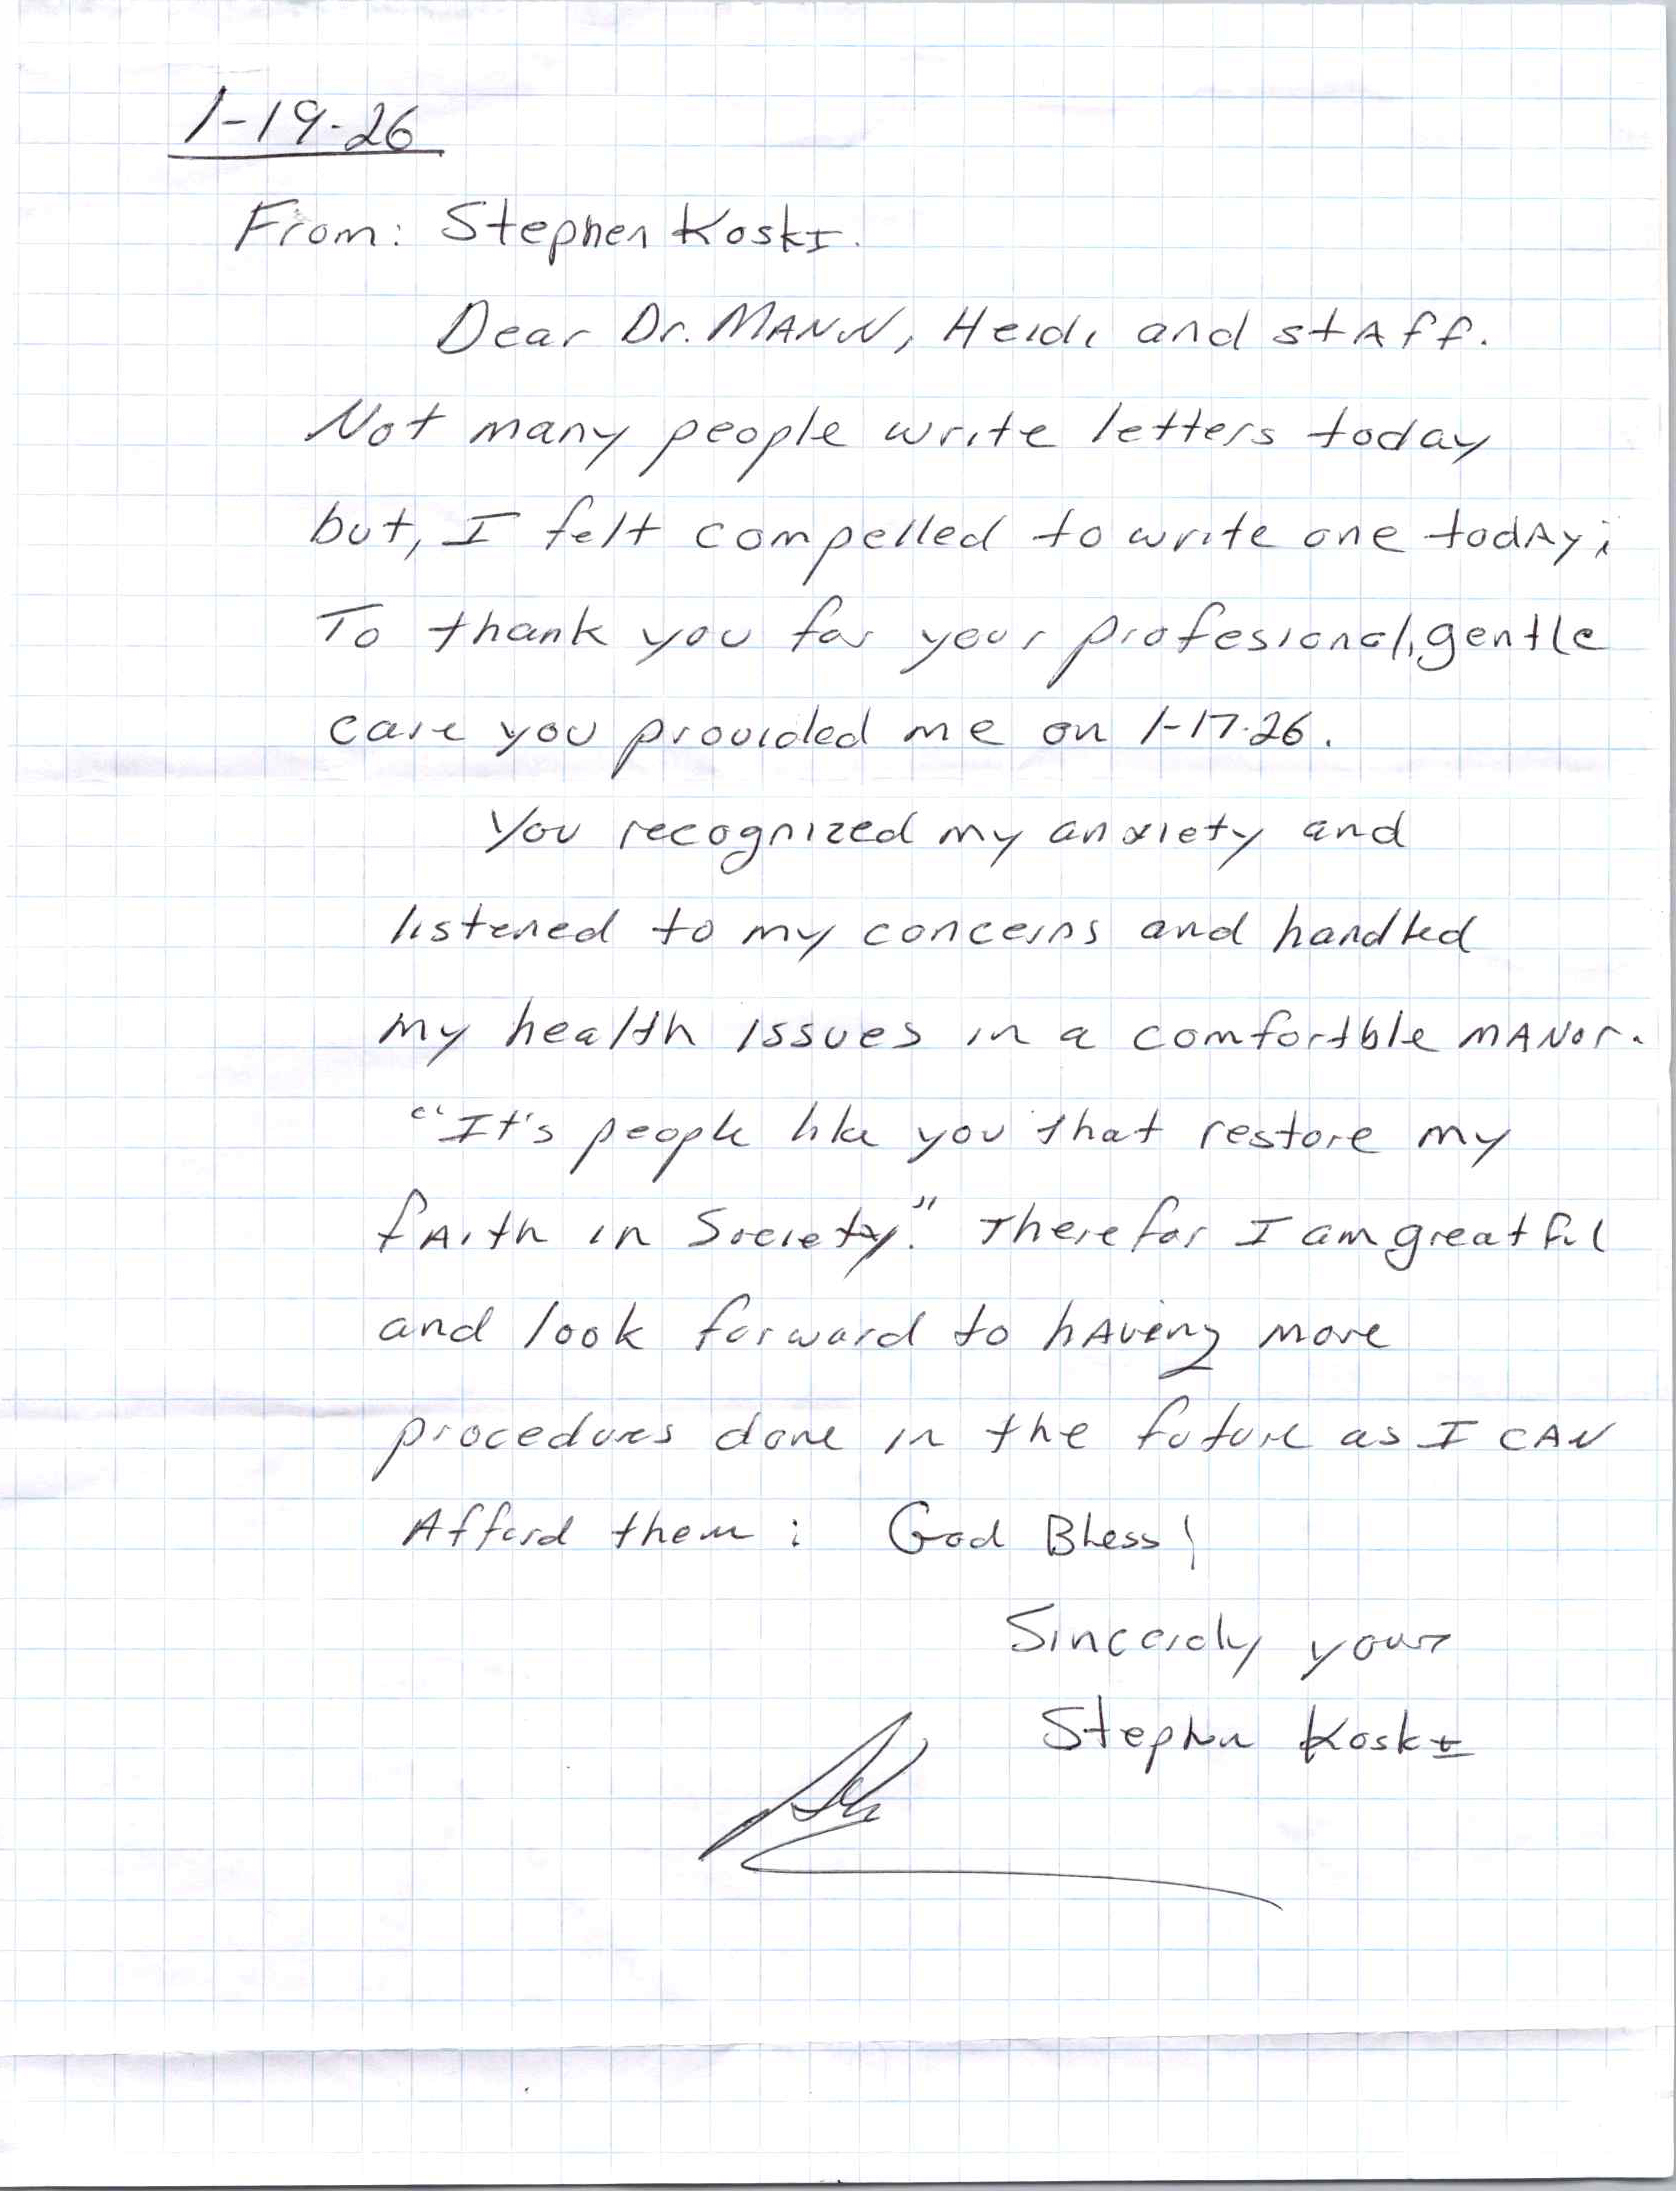 1-19-26
From: Stephen Koski.
Dear Dr. MANN, Heidi and stAff.
Not many people write letters today
but, I felt compelled to write one todAy;
To thank you for your profesional, gentle
care you provided me on 1-17-26.
You recognized my anxiety and
listened to my concerns and handled
my health issues in a comfortble MANor.
"It's people like you that restore my
fAith in Society." Therefor I am greatful
and look forward to hAving more
procedures done in the future as I CAN
Afford them: God Bless!
Sincerely yours
Stephen Koski